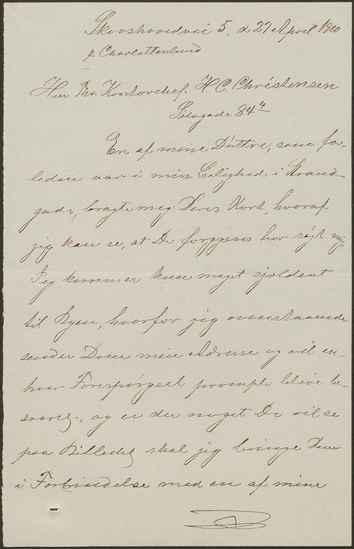 Skovshovedvei 5, d 27 April 1900
p. Charlottenlund
Herr Kontorchef. H C Christensen
Blegade 84
En af mine Døttre, som for
leden var i min Leilighed i Strand
gade, bragte mig Deres Kort, hvoraf
jeg kan se, at De forgjæves har søgt mig
Jeg kommer kun meget sjeldent
til Byen, hvorfor jeg ovenstaaende
sender Dem min Adresse og vil en-
hver Forespørgsel prompte blive be-
svaret, og er der noget De vil se
paa Billedet skal jeg bringe Dem
i Forbindelse med en af mine